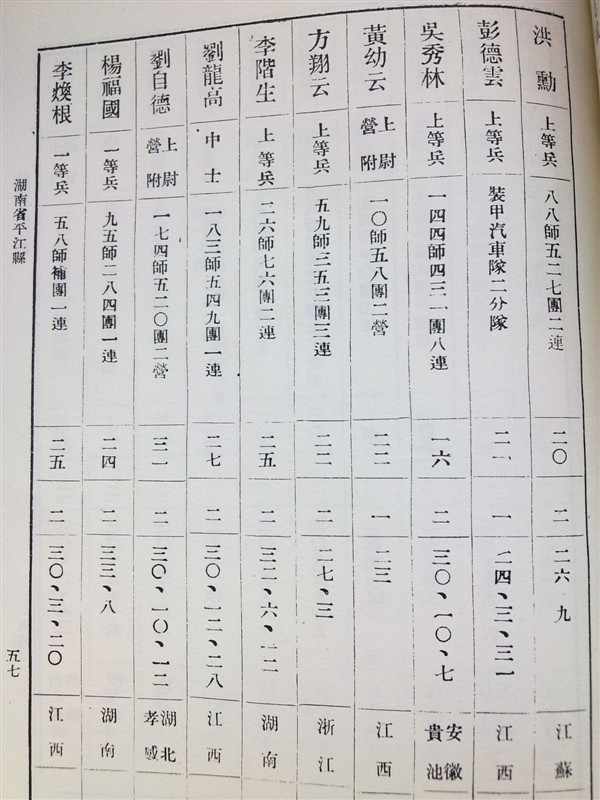 洪勳 上等兵 八八師五二七團二連 二〇 二 二六 九 江蘇
彭德雲 上等兵 裝甲汽車隊二分隊 二一 一 二四、三、三一 江西
吳秀林 上等兵 一四四師四三一團八連 一六 二 三〇、一〇、七 安徽貴池
黃幼云 上尉營附 一〇師五八團二營 二二 一 二三 江西
方翔云 上等兵 五九師三五三團三連 二二 二 二七、三 浙江
李階生 上等兵 二六師七六團二連 二五 二 三二、六、一二 湖南
劉龍高 中士 一八三師五四九團一連 二七 二 三〇、一二、二八 江西
劉自德 上尉營附 一七四師五二〇團二營 三一 二 三〇、一〇、一二 湖北孝感
楊福國 一等兵 九五師二八四團一連 二四 二 三三、八 湖南
李煥根 一等兵 五八師補團一連 二五 二 三〇、三、二〇 江西
湖南省平江縣
五七